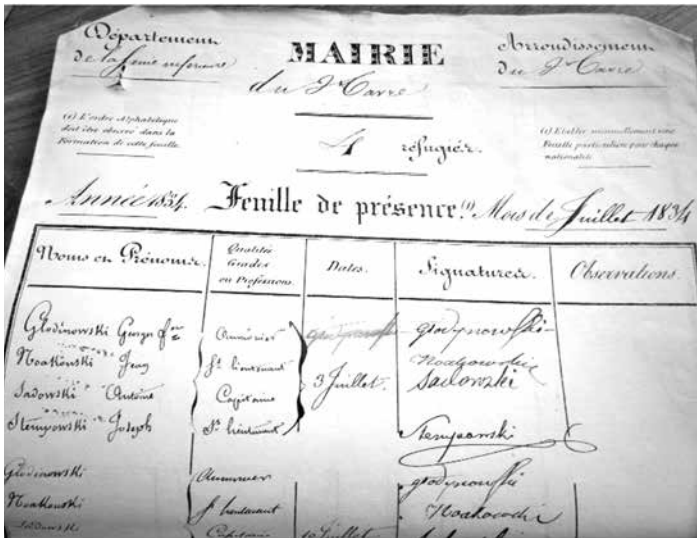 Département
MAIRIE
Arrondissement
de la Seine inférieure
du Havre
du Havre
(1) L'ordre Alphabétique
doit être observé dans la
Formation de cette feuille.
(1) Etablir mensuellement une
Feuille particulière pour chaque
nationalité.
4 réfugiés.
Année 1834. Feuille de présence (1) Mois de Juillet 1834
Noms et Prénoms.
Qualités
Grades
ou Professions.
Dates.
Signatures.
Observations.
Glodinowski Georges
Aumônier
głodynowski
Noakouski Jean
St lieutenant
Noakowski
Sadowski Antoine
Capitaine
3 Juillet.
Sadowski
Stempowski Joseph
St lieutenant
Stempowski
Glodinowski
Aumonier
głodynowski
Noakouski
St lieutenant
Noakowski
Capitaine
10 Juillet